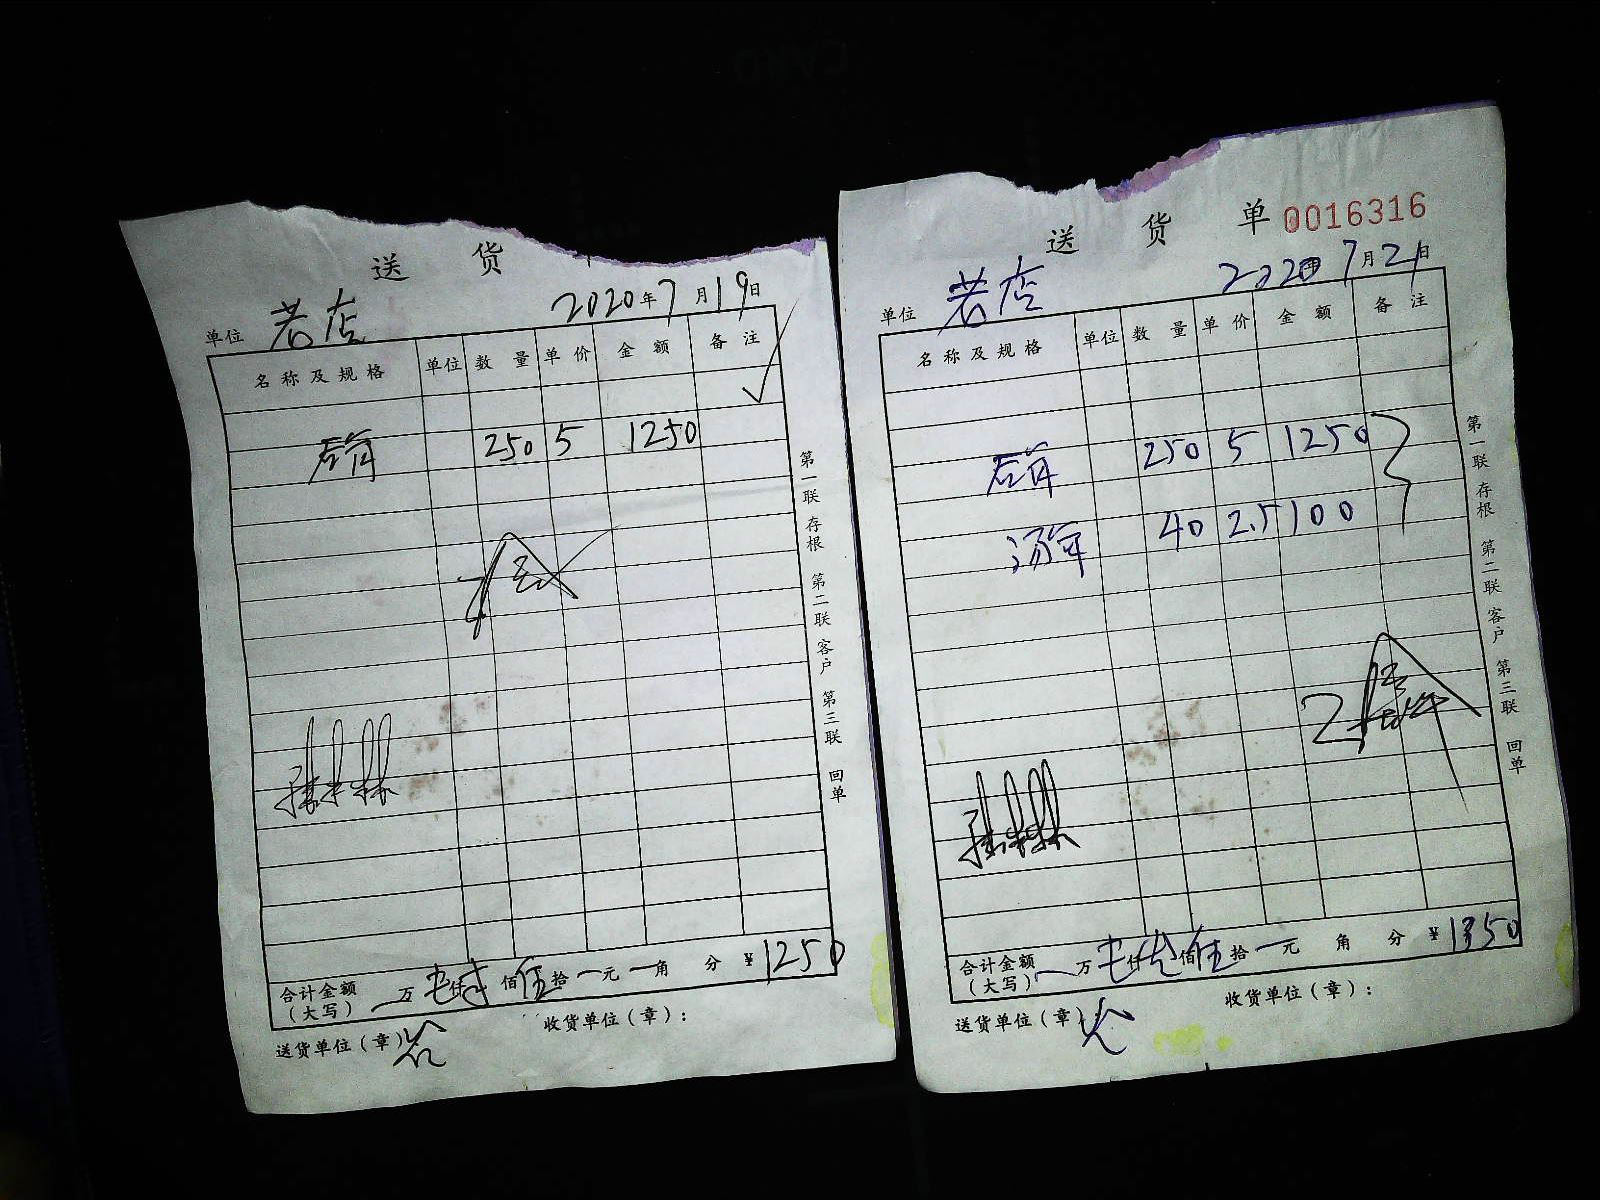 送 货
单位 老店 2020年7月19日
名称及规格 单位 数 量 单 价 金 额 备 注
250 5 1250
合计金额（大写） 万 仟 佰 伍拾 元 角 分 ¥1250
送货单位（章） 收货单位（章）：
第一联 存根 第二联 客户 第三联 回单
送 货 单 0016316
单位 老店 2020年7月21日
名称及规格 单位 数 量 单 价 金 额 备 注
250 5 1250
40 2.5 100
合计金额（大写） 万 仟 佰 伍拾 元 角 分 ¥1350
送货单位（章） 收货单位（章）：
第一联 存根 第二联 客户 第三联 回单